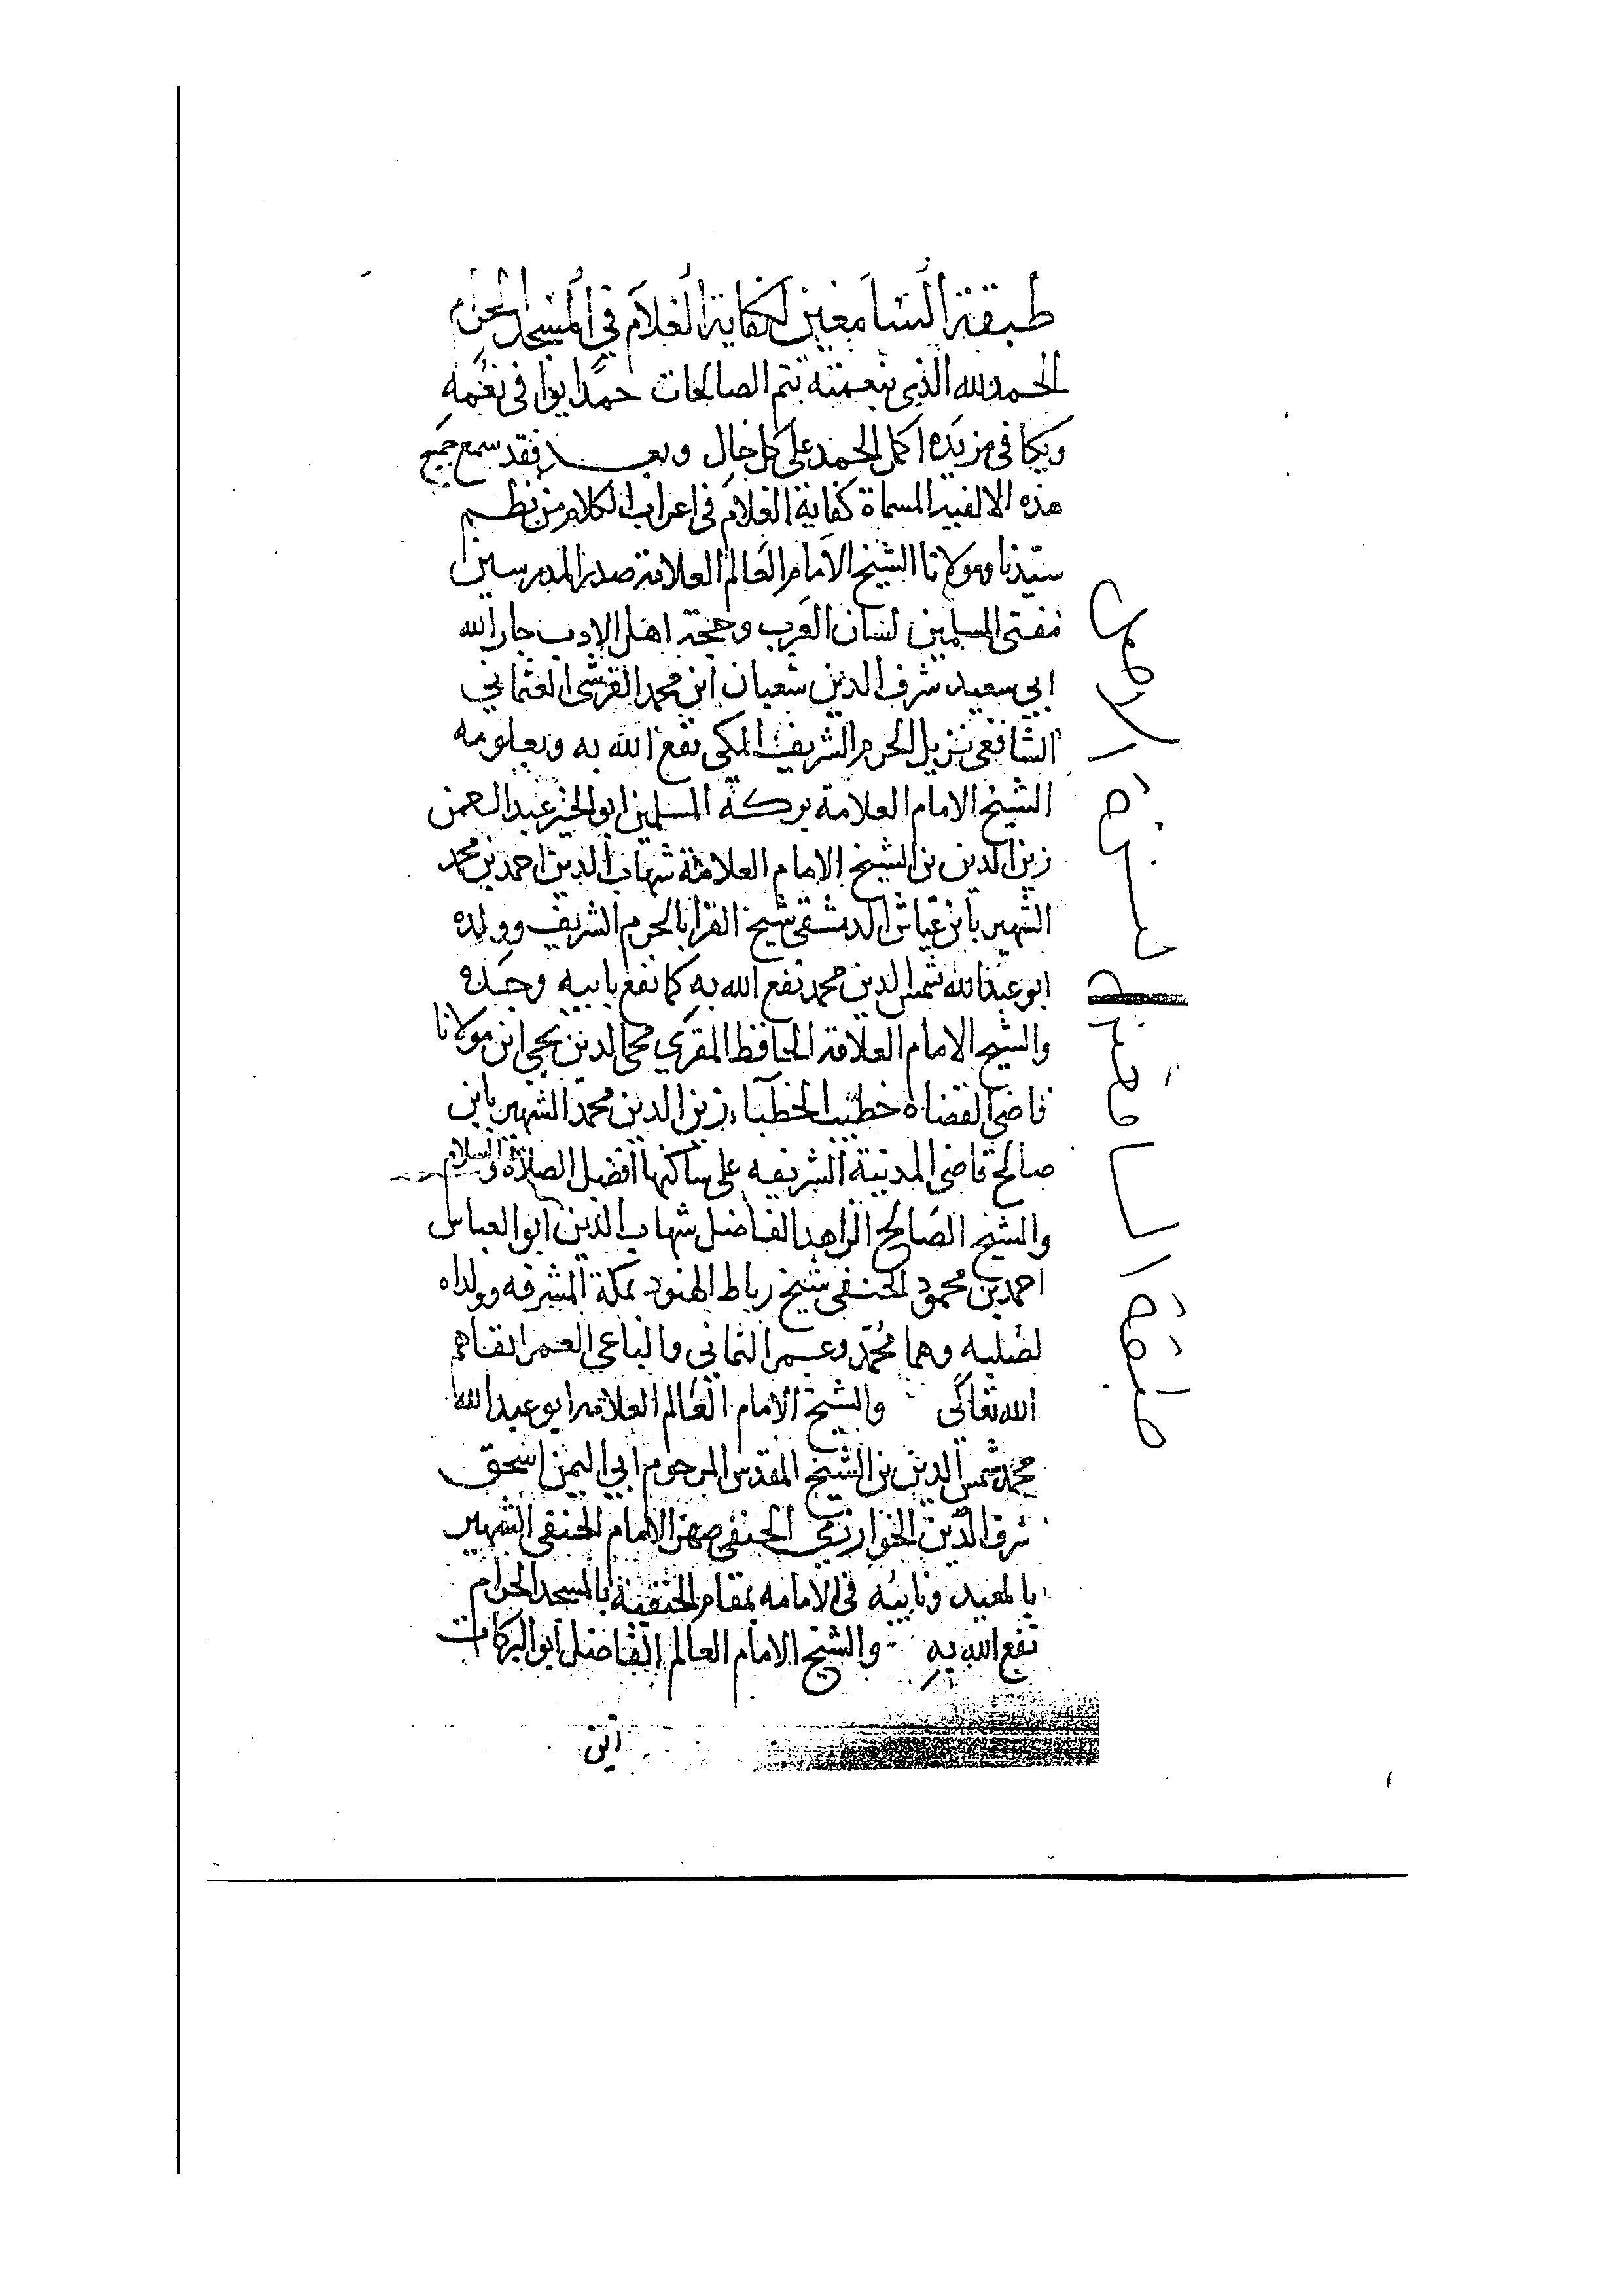 طبقة السامعين لكفاية الغلام في المسجد الحرام
الحمد لله الذي بنعمته تتم الصالحات حمدا يوافى نعمه
ويكافى مزيده اكمل الحمد على كل حال وبعد فقد سمع جميع
هذه الالفية المسماة كفاية الغلام فى اعراب الكلام من نظم
سيدنا ومولانا الشيخ الامام العالم العلامة صدر المدرسين
مفتى المسلمين لسان العرب وحجة اهل الادب جار الله
ابى سعيد شرف الدين شعبان ابن محمد القرشى العثمانى
الشافعى نزيل الحرم الشريف المكى نفع الله به وبعلومه
الشيخ الامام العلامة بركة المسلمين ابو الخير عبد الرحمن
زين الدين بن الشيخ الامام العلامة شهاب الدين احمد بن محمد
الشهير بابن عياش الدمشقى شيخ القرا بالحرم الشريف وولده
ابو عبد الله شمس الدين محمد نفع الله به كما نفع بابيه وجده
والشيخ الامام العلامة الحافظ المقري محى الدين يحيى ابن مولانا
قاضى القضاة خطيب الخطباء زين الدين محمد الشهير بابن
صالح قاضى المدينة الشريفه على ساكنها افضل الصلاة والسلام
والشيخ الصالح الزاهد الفاضل شهاب الدين ابو العباس
احمد بن محمود الحنفى شيخ رباط الهنود بمكة المشرفه وولداه
لصلبه وهما محمد وعمر الثمانى والباعى العمر ابقاهم
الله تعالى والشيخ الامام العالم العلامة ابو عبد الله
محمد شمس الدين بن الشيخ المقدس المرحوم ابي اليمن اسحق
شرف الدين الخوارزمي الحنفى صهر الامام الحنفى الشهير
بالمعيد ونايبه فى الامامه بمقام الحنفية بالمسجد الحرام
نفع الله به والشيخ الامام العالم الفاضل ابو البركات
ابن
طبقة السا